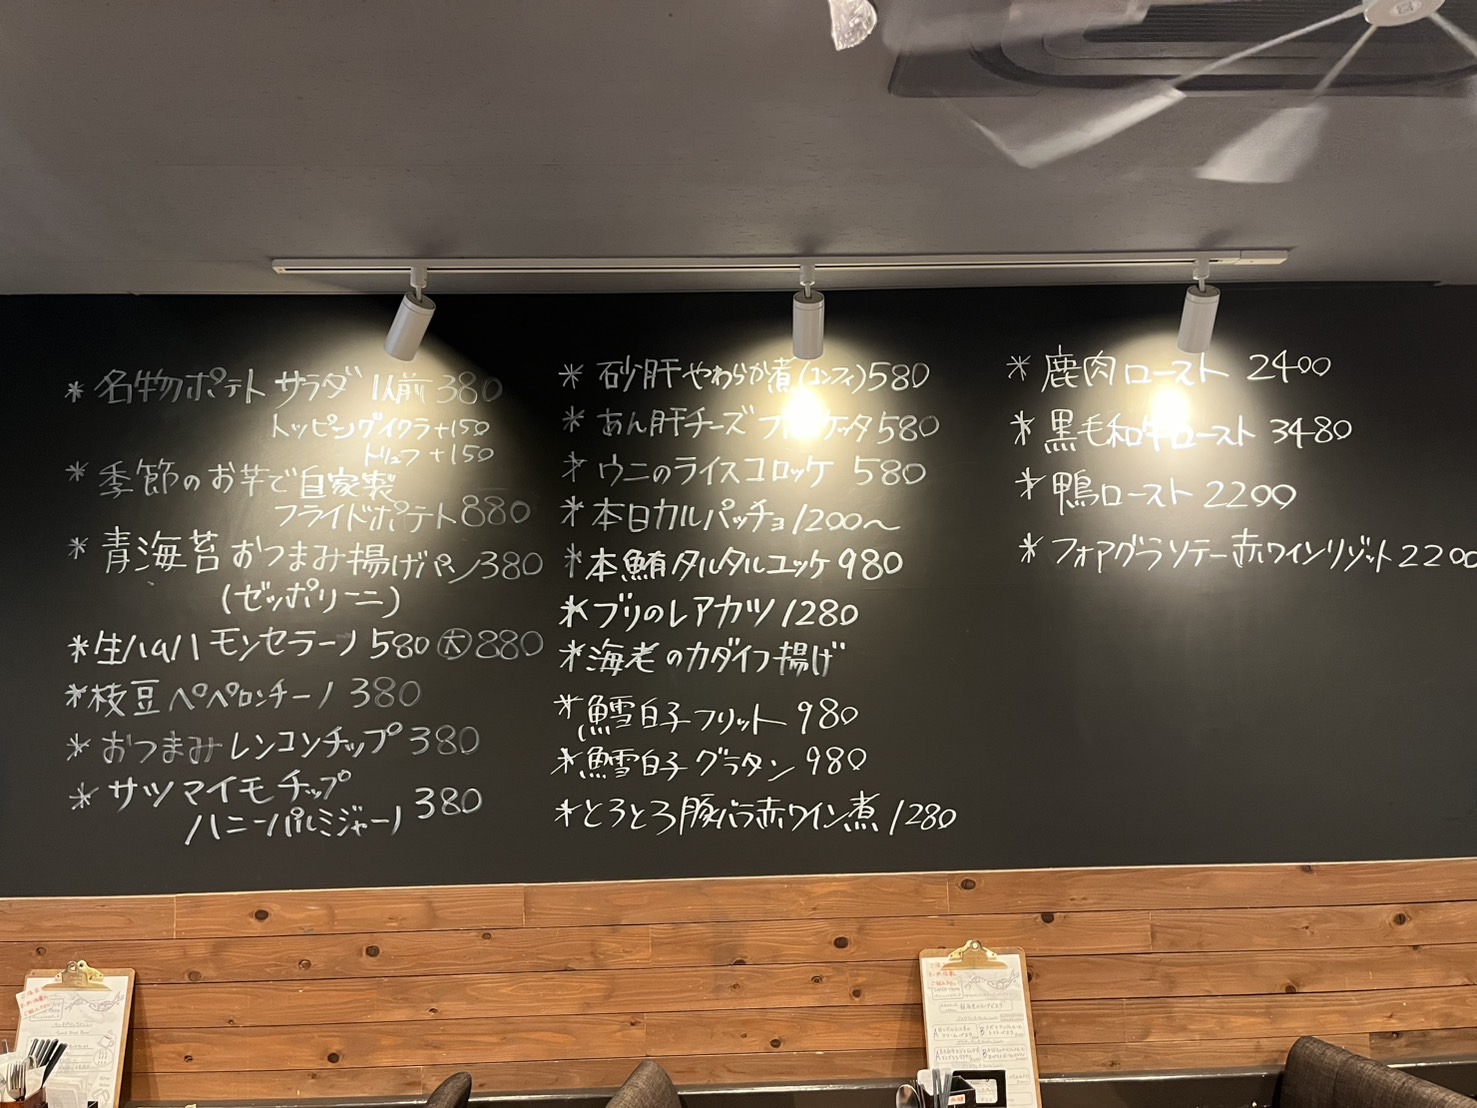 * 名物ポテトサラダ 1人前 380
トッピングイクラ+150
トリュフ+150
* 季節のお芋で自家製
フライドポテト 880
* 青海苔おつまみ揚げパン 380
(ゼッポリーニ)
* 生ハムハモンセラーノ 580 大 880
* 枝豆ペペロンチーノ 380
* おつまみレンコンチップ 380
* サツマイモチップ
ハニーパルミジャーノ 380
* 砂肝やわらか煮(コンフィ) 580
* あん肝チーズブルスケッタ 580
* ウニのライスコロッケ 580
* 本日カルパッチョ 1200〜
* 本鮪タルタルユッケ 980
* ブリのレアカツ 1280
* 海老のカダイフ揚げ
* 鱈白子フリット 980
* 鱈白子グラタン 980
* とろとろ豚バラ赤ワイン煮 1280
* 鹿肉ロースト 2400
* 黒毛和牛ロースト 3480
* 鴨ロースト 2200
* フォアグラソテー赤ワインリゾット 2200